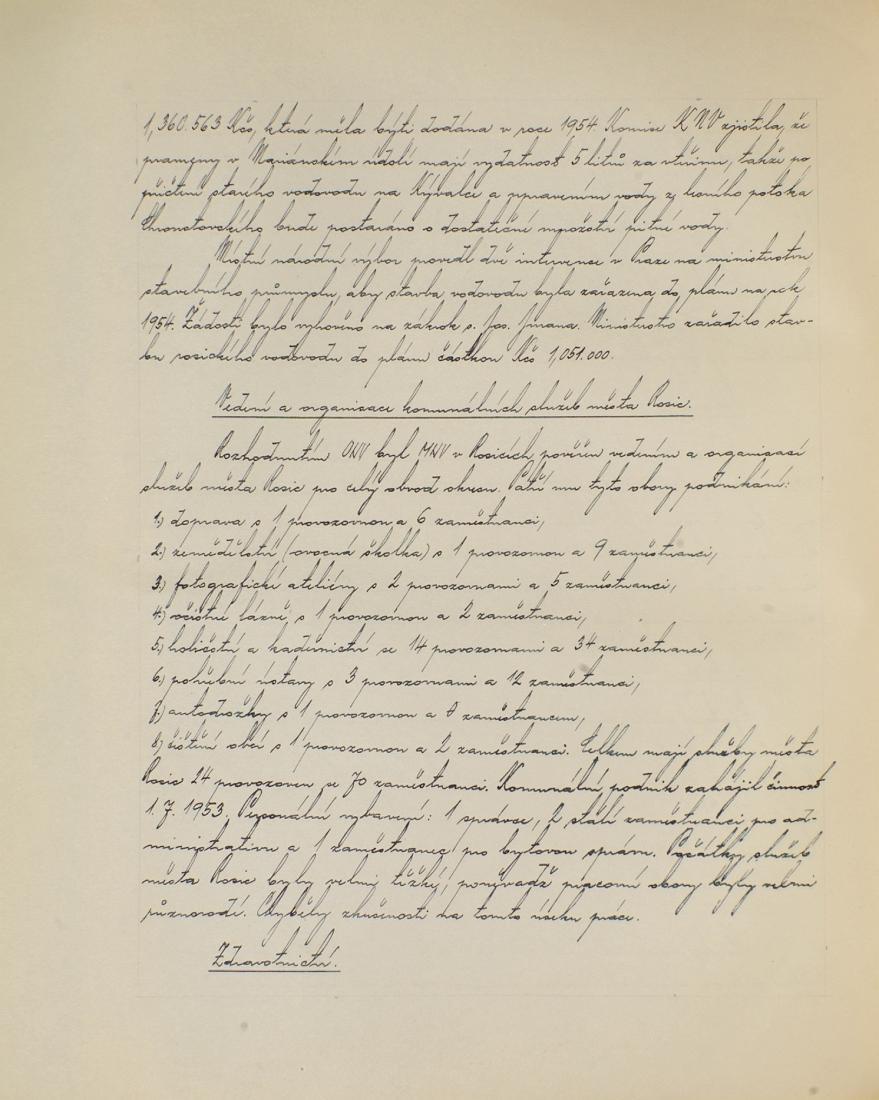 1,360.563 Kčs, která měla býti dodána v roce 1954. Komise KNV zjistila, že
prameny v Mariánském údolí mají vydatnost 5 litrů za vteřinu, takže po
přičtení starého vodovodu na Kývalce a upravením vody z horního potoka
Chroustovského bude postaráno o dostatečné množství pitné vody.
Místní národní výbor provedl dvě intervence v Praze na ministerstvu
stavebního průmyslu, aby stavba vodovodu byla zařazena do plánu na rok
1954. Žádosti bylo vyhověno na zákrok s. Jos. Jirana. Ministerstvo zařadilo stav-
bu rosického vodovodu do plánu částkou Kčs 1,051.000.
Vedení a organisace komunálních služeb města Rosic.
Rozhodnutím ONV byl MNV v Rosicích pověřen vedením a organisací
služeb města Rosic pro celý obvod okresu. Patří mu tyto obory podnikání:
1.) doprava s 1 provozovnou a 6 zaměstnanci,
2.) zemědělství (ovocná školka) s 1 provozovnou a 9 zaměstnanci,
3.) fotografické ateliéry s 2 provozovnami a 5 zaměstnanci,
4.) očistné lázně s 1 provozovnou a 2 zaměstnanci,
5.) holičství a kadeřnictví se 14 provozovnami a 34 zaměstnanci,
6.) pohřební ústavy s 3 provozovnami a 12 zaměstnanci,
7.) autodrožky s 1 provozovnou a zaměstnancem,
8.) čištění obcí s 1 provozovnou a 2 zaměstnanci. Celkem mají služby města
Rosic 24 provozoven se 70 zaměstnanci. Komunální podnik zahájil činnost
1. 7. 1953. Personální vybavení: 1 správce, 2 stálí zaměstnanci pro ad-
ministrativu a 1 zaměstnanec pro bytovou správu. Počátky služeb
města Rosic byly velmi těžké, poněvadž pracovní obory byly velmi
různorodé. Chyběly zkušenosti na tomto úseku práce.
Zdravotnictví.